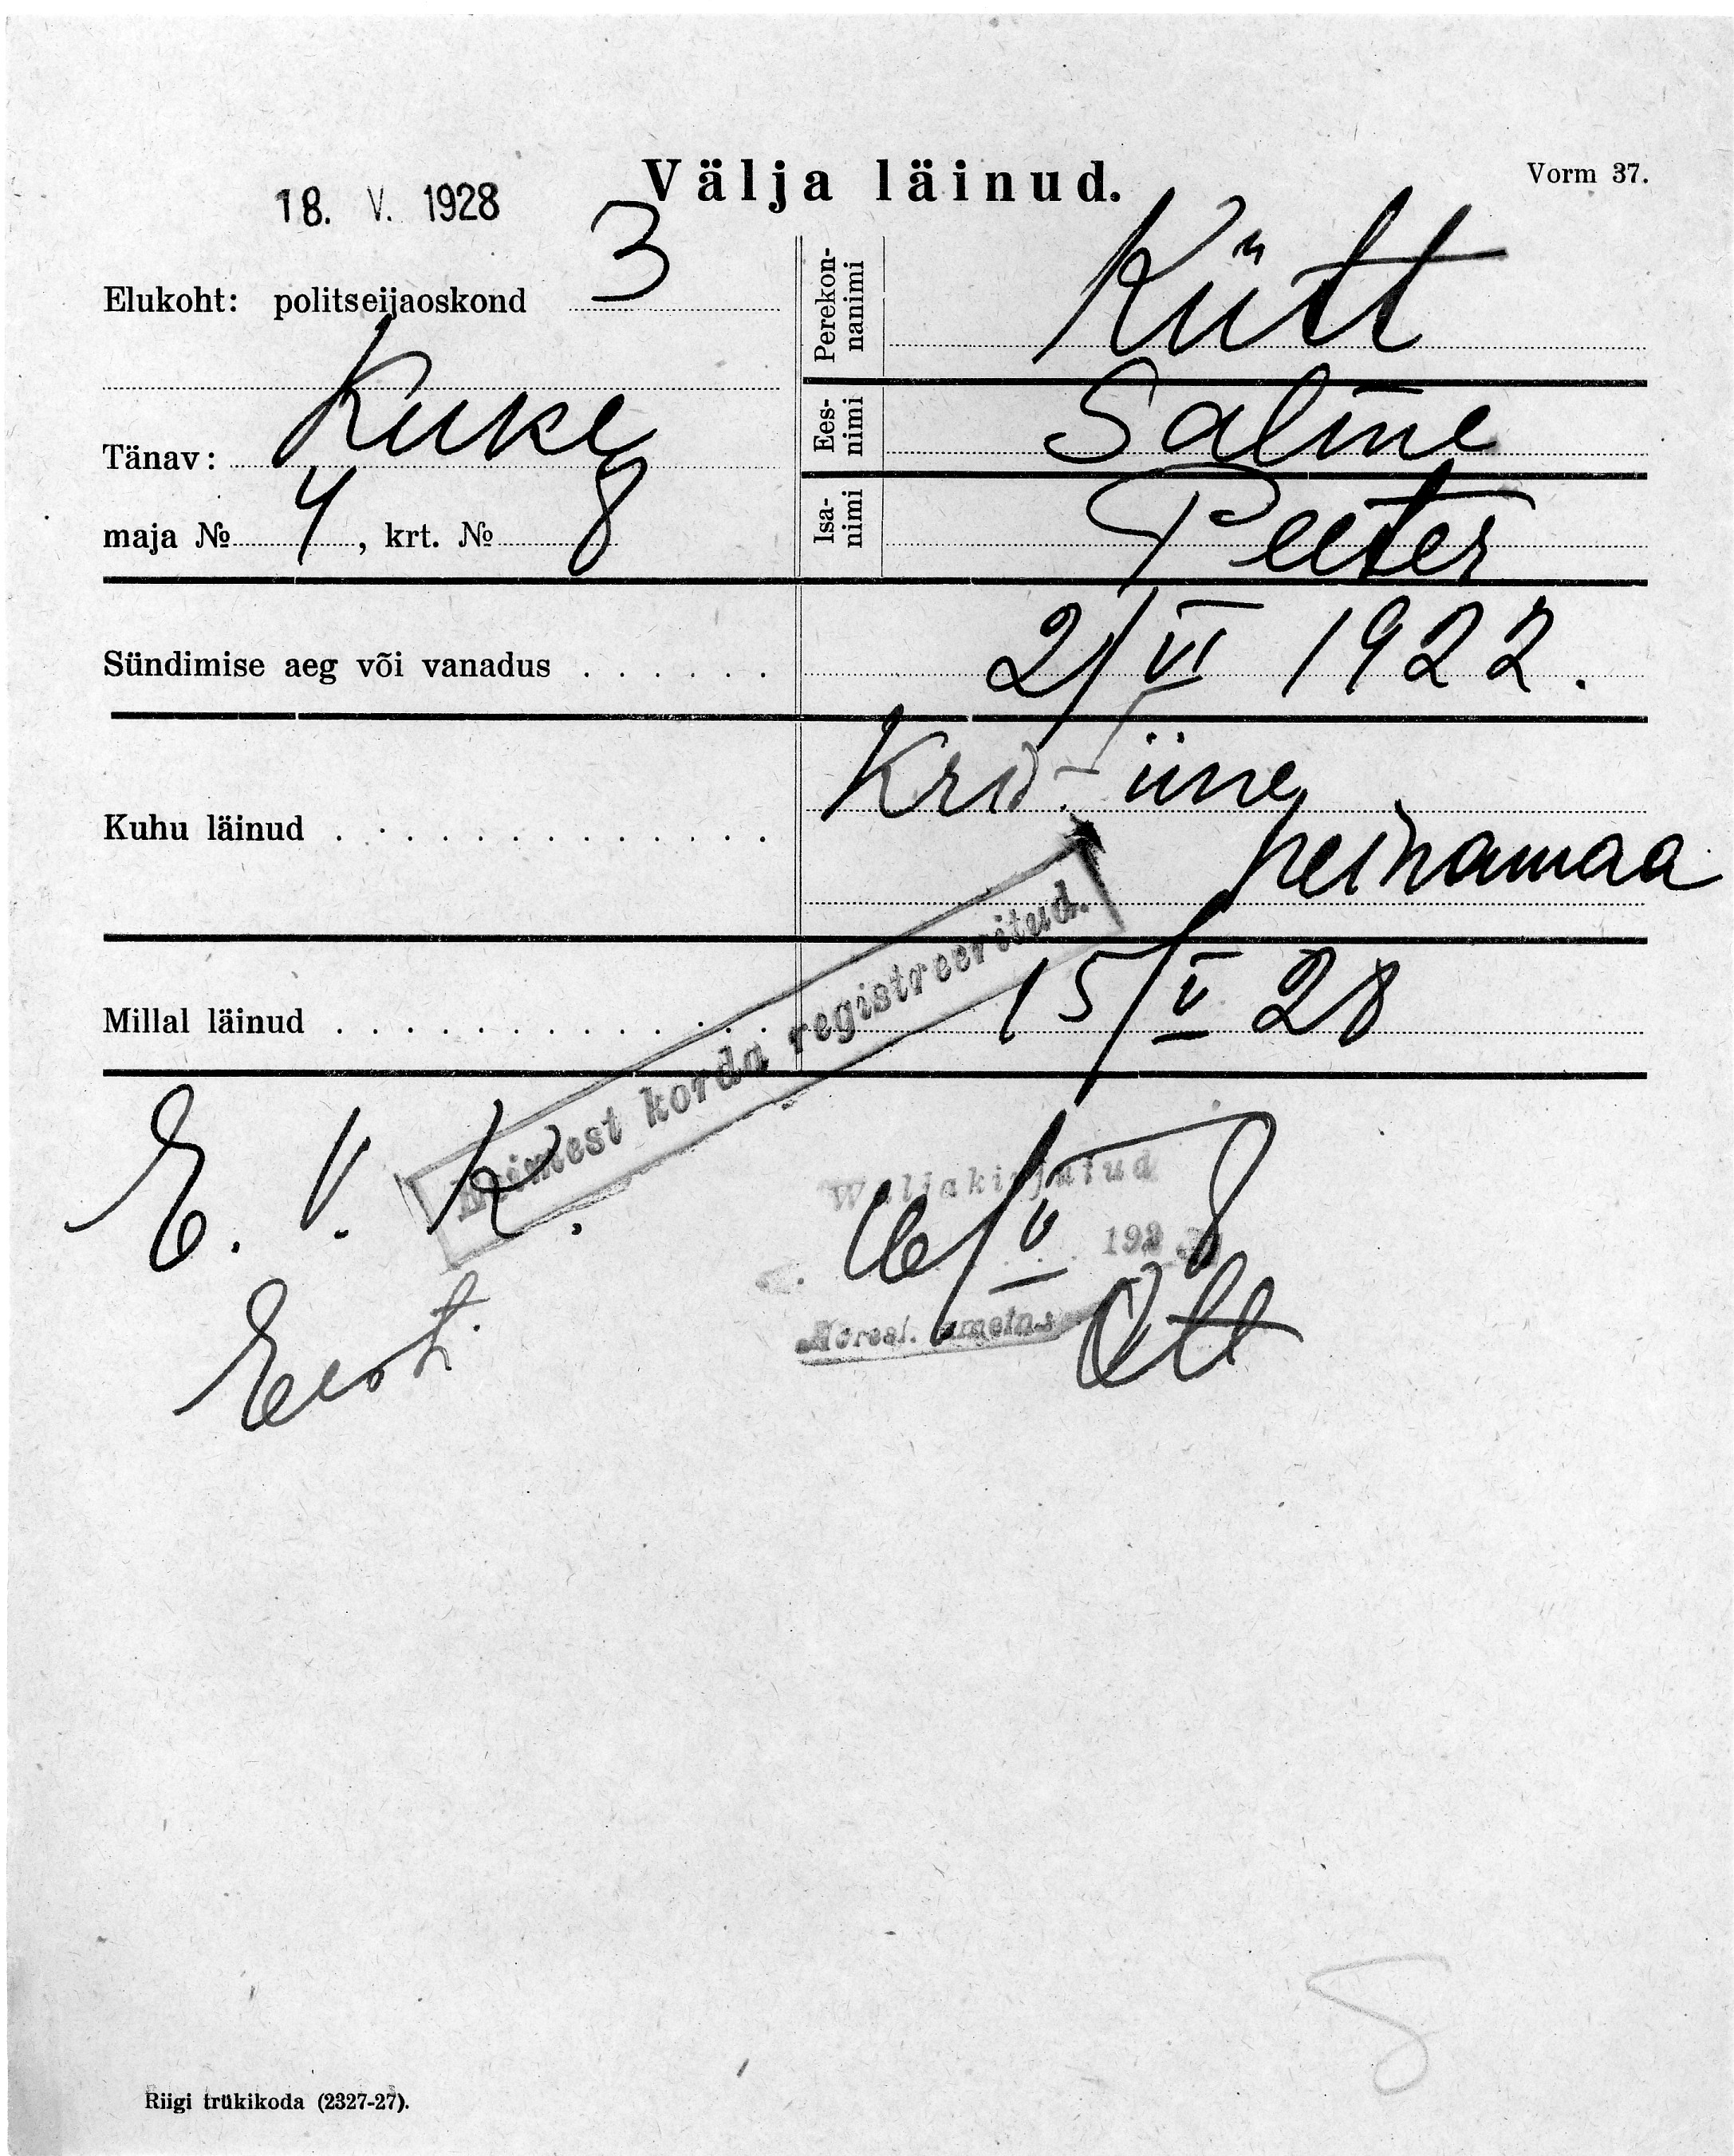 Välja läinud.
Vorm 37.
18. V. 1928
Elukoht: politseijaoskond 3
Tänav: Kuke
maja № 4, krt. № 8
Perekon-
nanimi
Kütt
Ees-
nimi
Salme
Isa-
nimi
Peeter
Sündimise aeg või vanadus . . . . . . 2/VI 1922.
Kuhu läinud . . . . . . . . . . . . . Kristiine
heinamaa
Millal läinud . . . . . . . . . . . . . 15/V 28
Esimest korda registreeritud.
E. V. K.
Eesti
Wäljakirjutud
16/V 8
192
Ott
Riigi trükikoda (2327-27).